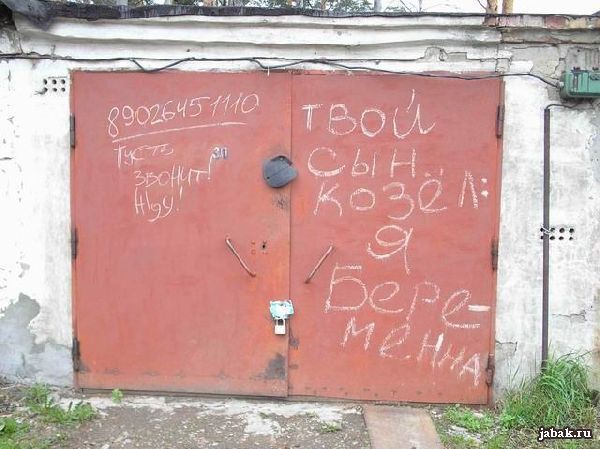 89026451110
Пусть
ЗВОНИТ!
Жду!
ТВОЙ
СЫН
КОЗЁЛ:
Я
Бере-
менна
jabak.ru